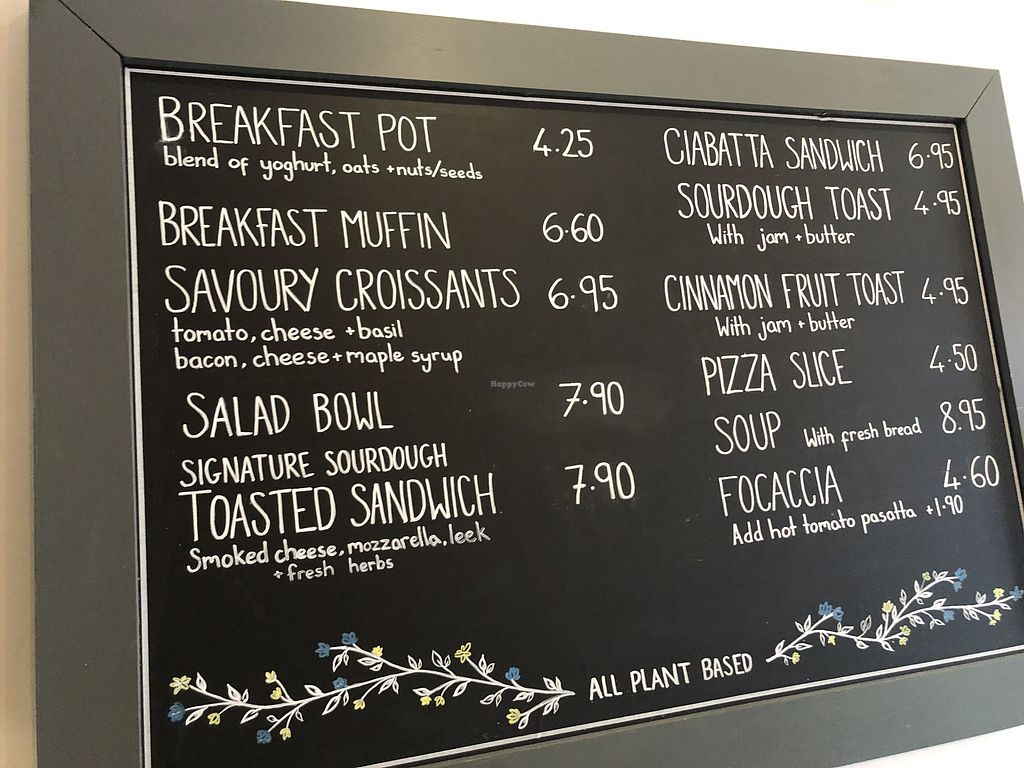 BREAKFAST POT 4.25
blend of yoghurt, oats +nuts/seeds
BREAKFAST MUFFIN 6.60
SAVOURY CROISSANTS 6.95
tomato, cheese +basil
bacon, cheese+maple syrup
SALAD BOWL 7.90
SIGNATURE SOURDOUGH
TOASTED SANDWICH 7.90
Smoked cheese, mozzarella, leek
+ fresh herbs
CIABATTA SANDWICH 6.95
SOURDOUGH TOAST 4.95
With jam + butter
CINNAMON FRUIT TOAST 4.95
With jam + butter
PIZZA SLICE 4.50
SOUP With fresh bread 8.95
FOCACCIA 4.60
Add hot tomato pasatta +1.90
ALL PLANT BASED
HappyCow